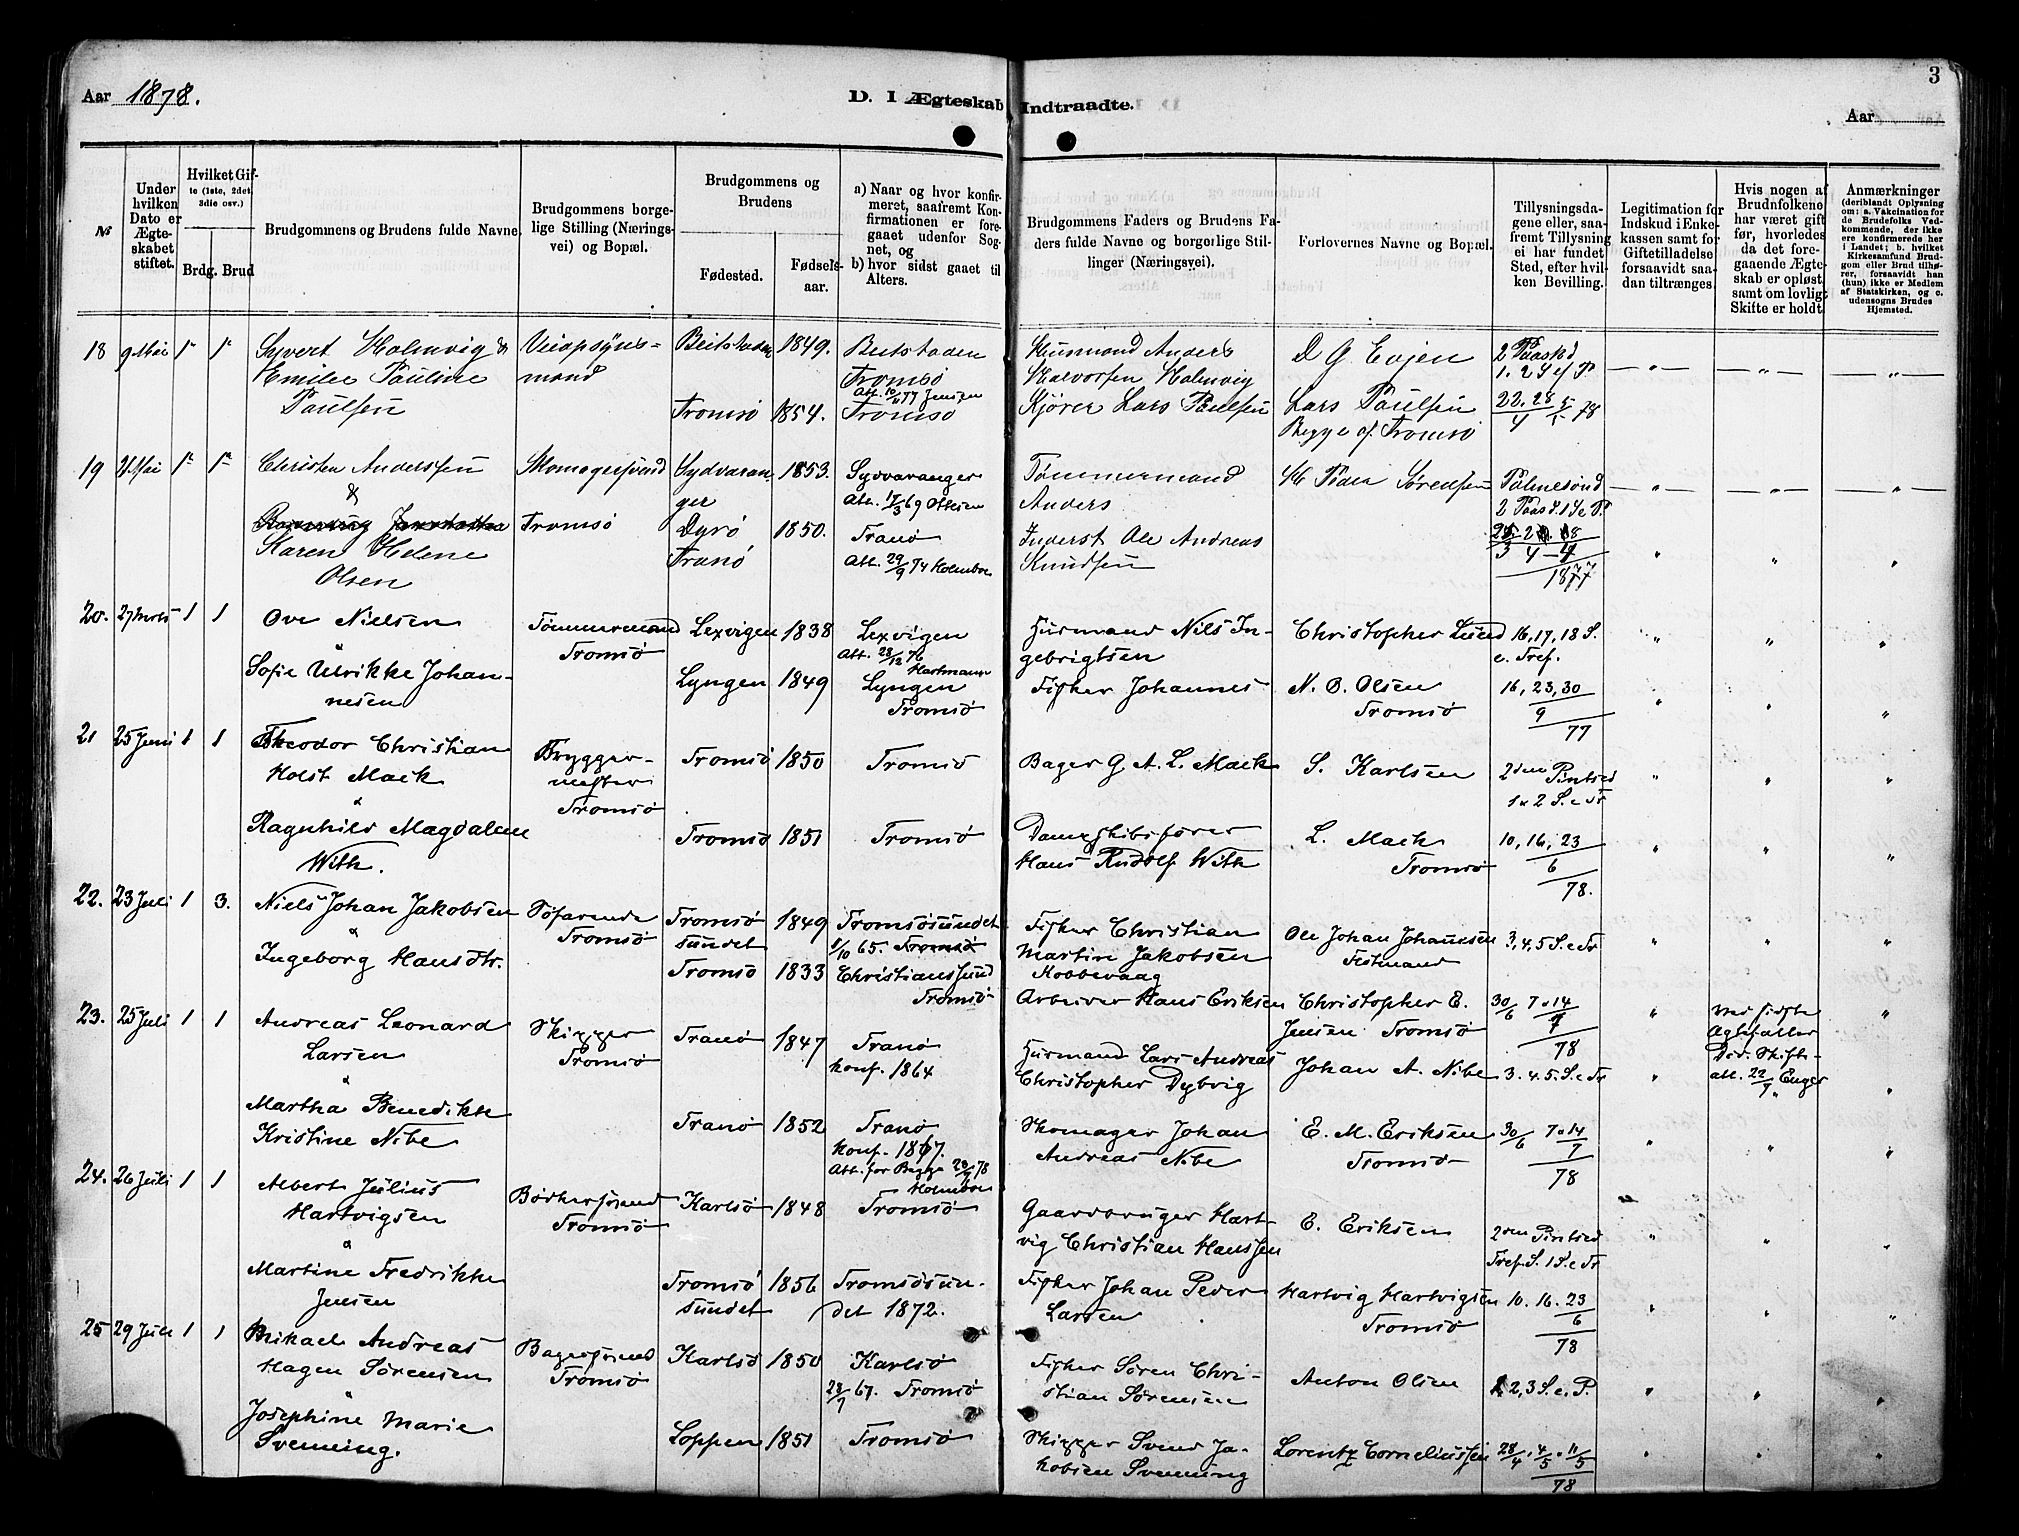 Aar 1878.
D. I Ægteskab Indtraadte.
3
Aar
№
Under hvilken Dato er Ægteskabet stiftet.
Hvilket Gifte (1ste, 2det, 3die osv.)
Brdg. Brud
Brudgommens og Brudens fulde Navne.
Brudgommens borgelige Stilling (Næringsvei) og Bopæl.
Brudgommens og Brudens
Fødested.
Fødselsaar.
a) Naar og hvor konfirmeret, saafremt Konfirmationen er foregaaet udenfor Sognet, og
b) hvor sidst gaaet til Alters.
Brudgommens Faders og Brudens Faders fulde Navne og borgerlige Stillinger (Næringsvei).
Forlovernes Navne og Bopæl.
Tillysningsdagene eller, saafremt Tillysning ei har fundet Sted, efter hvilken Bevilling.
Legitimation for Indskud i Enkekassen samt for Giftetilladelse forsaavidt saadan tiltrænges.
Hvis nogen af Brudnfolkene har været gift før, hvorledes da det foregaaende Ægteskab er opløst, samt om lovligt Skifte er holdt.
Anmærkninger (deriblandt Oplysning om: a. Vakcination for de Brudefolks Vedkommende, der ikke ere konfirmerede her i Landet; b. hvilket Kirkesamfund Brudgom eller Brud tilhører, forsaavidt han (hun) ikke er Medlem af Statskirken, og c. udensogns Brudes Hjemsted.
18 9 Mai 1 1 Syvert Holmvig &
Emilie Pauline
Paulsen
Veiopsyns-
mand
Beitstaden 1849. Beitstaden
Tromsø
Tromsø 1854. Tromsø
Husmand Anders
Halvorsen Holmvig
Kjører Lars Paulsen
D G Evjen
Lars Paulsen
Begge af Tromsø
2 Paaskd
22. 28 5
4 78
19 21 Mai 1 1 Christen Anderssen
&
Karen Helene
Olsen
Skomagersvend
Tromsø
Sydvaran-
ger
1853. Sydvaranger
Att. 17/3 69
Dyrø
Tranø
1850. Tranø
Att. 29/9 74 Holmboe
Tømmermand
Anders
Inderst Ole Andreas
Knudsen
Peder Sørensen
1877
20. 1 1 Ove Nielsen
&
Sofie Ulrikke Johan-
nesen
Tømmermand
Tromsø
Lexvigen 1838 Lexvigen
Att. 28/12 76
Hartmann
Lyngen 1849 Lyngen
Tromsø
Husmand Nils In-
gebrigtsen
Fisker Johannes
Christopher Lund
N. O. Olsen
Tromsø
16, 17, 18 S.
e. Tref.
16, 23, 30
9
77
21 25 Juni 1 1 Theodor Christian
Holst Mack
&
Ragnhild Magdalene
With.
Brygger-
mester
Tromsø
Tromsø 1850 Tromsø
Tromsø 1851 Tromsø
Bager G. A. L. Mack
Dampskibsfører
Hans Rudolf With
S. Karlsen
L. Mack
Tromsø
2den Pintsed
1 & 2 S. e Tr
10, 16, 23
6
78.
22. 23 Juli 1 3. Niels Johan Jakobsen
&
Ingeborg Hansdtr.
Søfarende
Tromsø
Tromsø
sundet
1849 Tromsøsundet
1/10 65. Tromsø
Tromsø 1833 Christianssund
Tromsø
Fisker Christian
Martin Jakobsen
Kobbevaag
Arbeider Hans Eriksen
Ole Johan Johannesen
Christopher E.
Jensen Tromsø
3, 4, 5 S. e Tr
30/6 7 & 14
7
78
23. 25 Juli 1 1 Andreas Leonard
Larsen
&
Martha Benedikte
Kristine Nibe
Skipper
Tromsø
Tranø 1847 Tranø
konf. 1864
Tranø 1852 Tranø
konf. 1867.
Att. for Begge
Holmboe
Husmand Lars Andreas
Christopher Dybvig
Skomager Johan
Andreas Nibe
Johan A. Nibe
E. M. Eriksen
Tromsø
3. 4. 5. S. e Tr
30/6 7 & 14
7
78
24. 26 Juli 1 1 Albert Julius
Hartvigsen
&
Martine Fredrikke
Jensen
Bødkersvend
Tromsø
Karlsø 1848 Tromsø
Tromsø
sundet
1856 Tromsøsun-
det 1872.
Gaardbruger Hart-
vig Christian Hanssen
Fisker Johan Peder
Larsen
E. Eriksen
Hartvig Hartvigsen
Tromsø
2den Pintsed
Tref. S. 1 S. e Tr
10. 16. 23
6
78
25 29 Juli 1 1 Mikael Andreas
Hagen Sørensen
&
Josephine Marie
Svenning.
Bagersvend
Tromsø
Karlsø 1850 Karlsø
67. Tromsø
Loppen 1851 Tromsø
Fisker Søren Chri-
stian Sørensen
Skipper Svend Ja-
kobsen Svenning
Anton Olsen
Lorentz Corneliussen
2, 3 S. e. P.
28/4. 4/5. 11/5
78